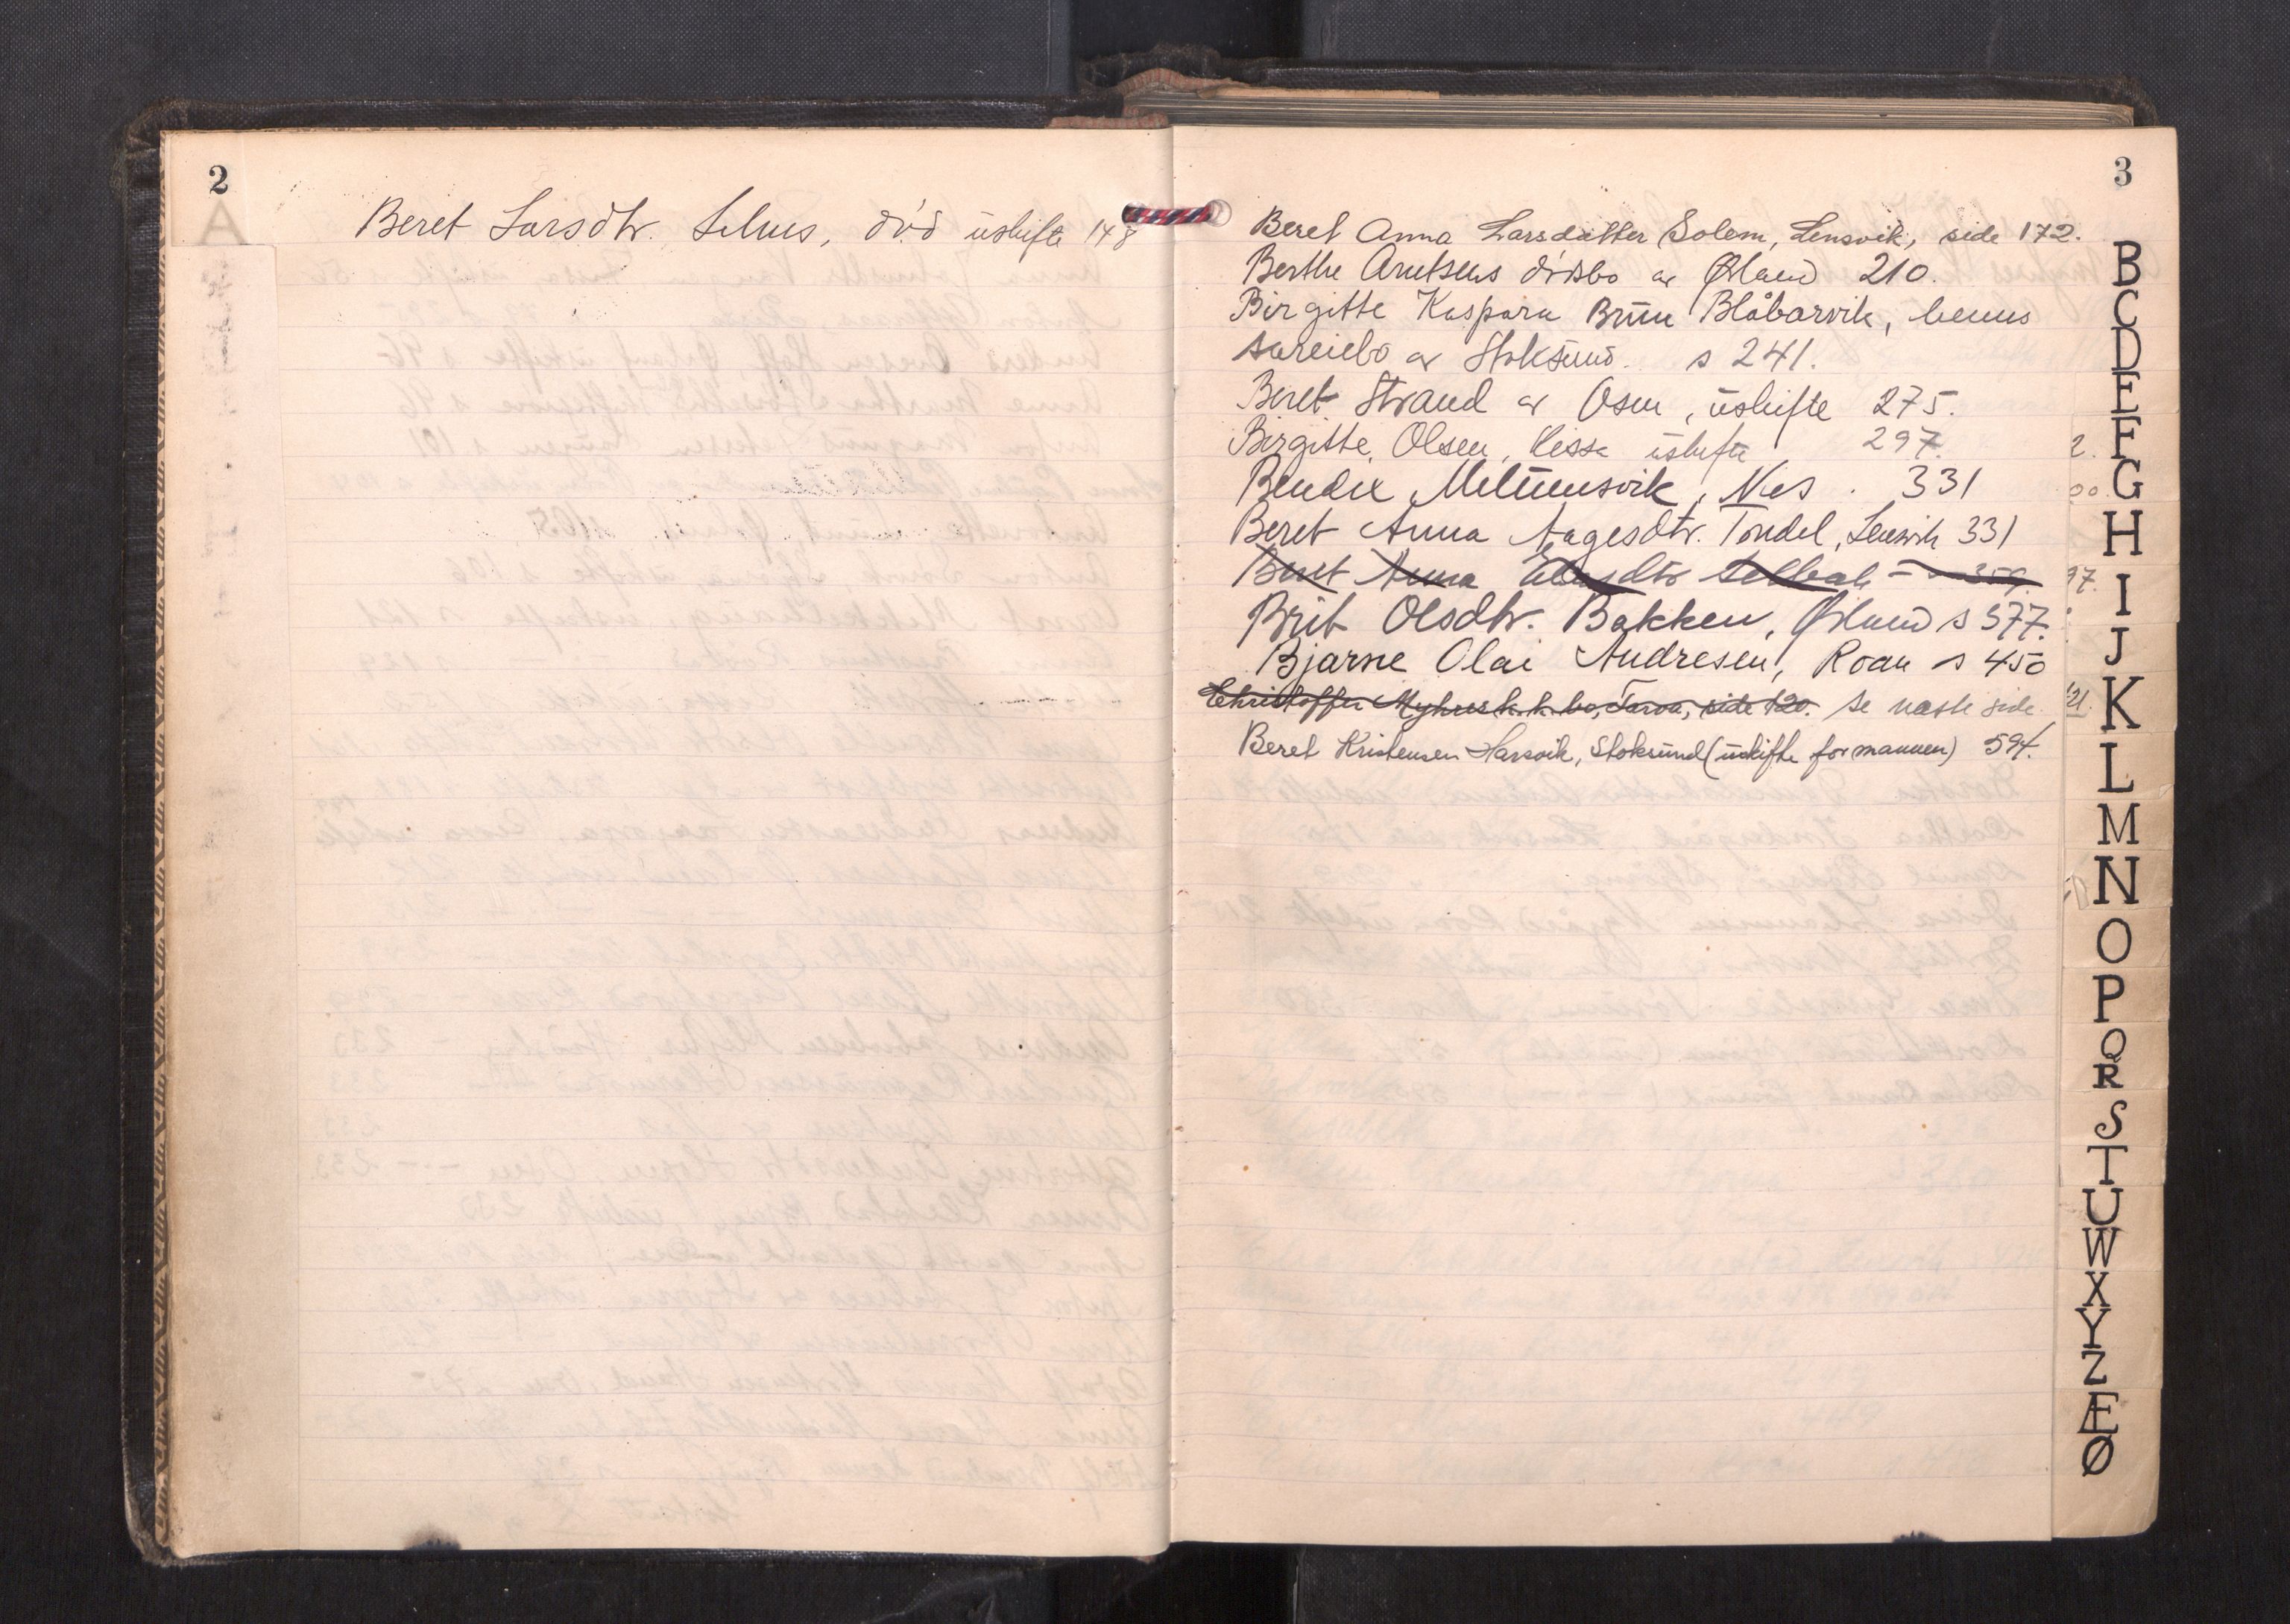 2
Beret Larsdtr. Selnes, død uskifte 148
3
Beret Anna Larsdatter Solem, Lensvik, side 172.
Berthe Arntsens dødsbo av Ørland 210.
Birgitte Kaspara Brun Blåbarvik, hennes
særeiebo av Stoksund. s 241.
Beret Strand av Osen, uskifte 275.
Birgitte Olsen, Rissa uskifte 297.
Bendix Meltunsvik, Nes. 331
Beret Anna Aagesdtr. Tøndel, Lensvik 331
Beret Anna Selbak - - 359.
Brit Olsdtr. Bakken, Ørland s 377.
Bjarne Olai Andresen, Roan s 450
Christoffer Myhres k.k. bo, Tarva, side 120. se næste side
Beret Kristensen Harsvik, Stoksund (uskifte for mannen) 594.
B
C
D
E
F
G
H
I
J
K
L
M
N
O
P
Q
R
S
T
U
W
X
Y
Z
Æ
Ø